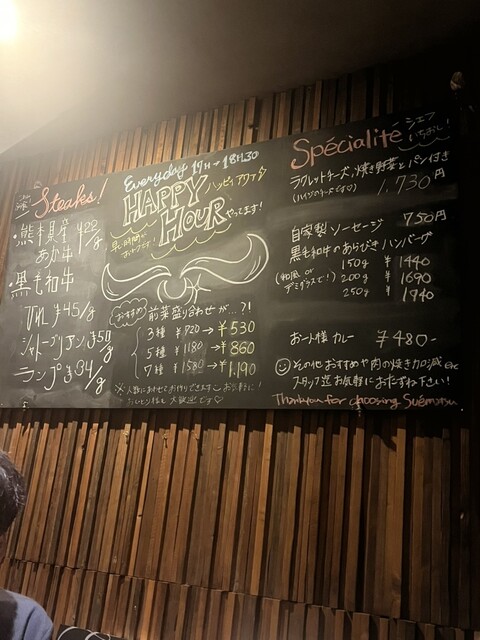 Steaks!
・熊本県産
あか牛 ¥22/g
・黒毛和牛
ひれ ¥45/g
シャトーブリアン ¥50/g
ランプ ¥34/g
Everyday 17H→18H30
HAPPY
HOUR
ハッピィアワァ
やってます!
早い時間が
おトクです!
おすすめ 前菜盛り合わせが...?!
3種 ¥720→¥530
5種 ¥1180→¥860
7種 ¥1580→¥1,190
※人数にあわせてお作りできます お気軽に!
※おひとり様も大歓迎です♡
Spécialité
シェフ
いちおし!
ラクレットチーズ、焼き野菜とパン付き
1,730円
自家製ソーセージ 750円
黒毛和牛のあらびきハンバーグ
(和風 or
デミグラスで!)
150g ¥1440
200g ¥1690
250g ¥1940
お一人様カレー ¥480-
その他おすすめや肉の焼き加減etc
スタッフ迄お気軽におたずね下さい!
Thank you for choosing Suémotsu